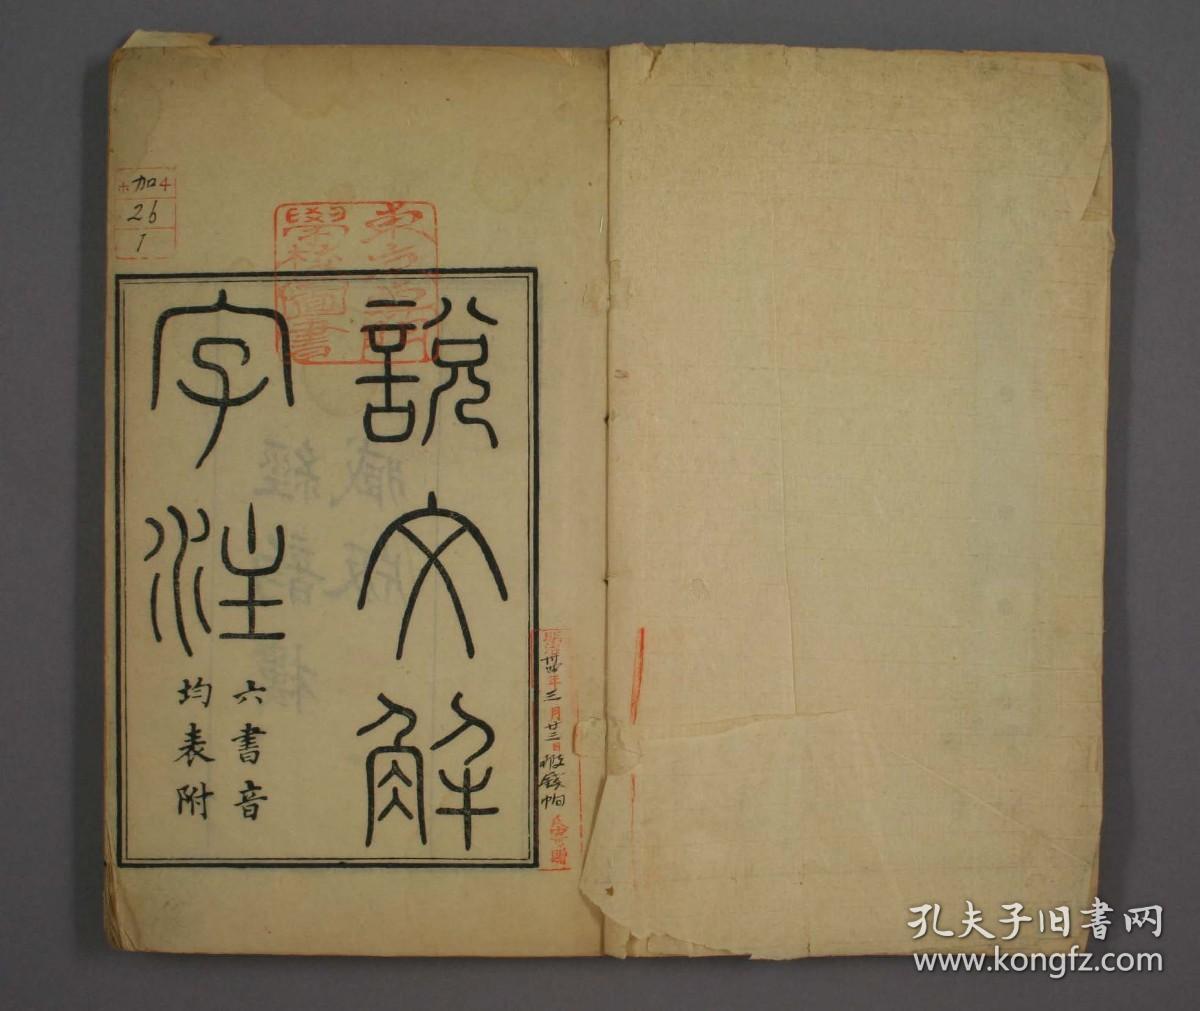 說文解
字注
六書音
均表附
經韵樓
臧版
加
26
1
學校圖書
明治
年三月廿三日
孔夫子旧书网
www.kongfz.com